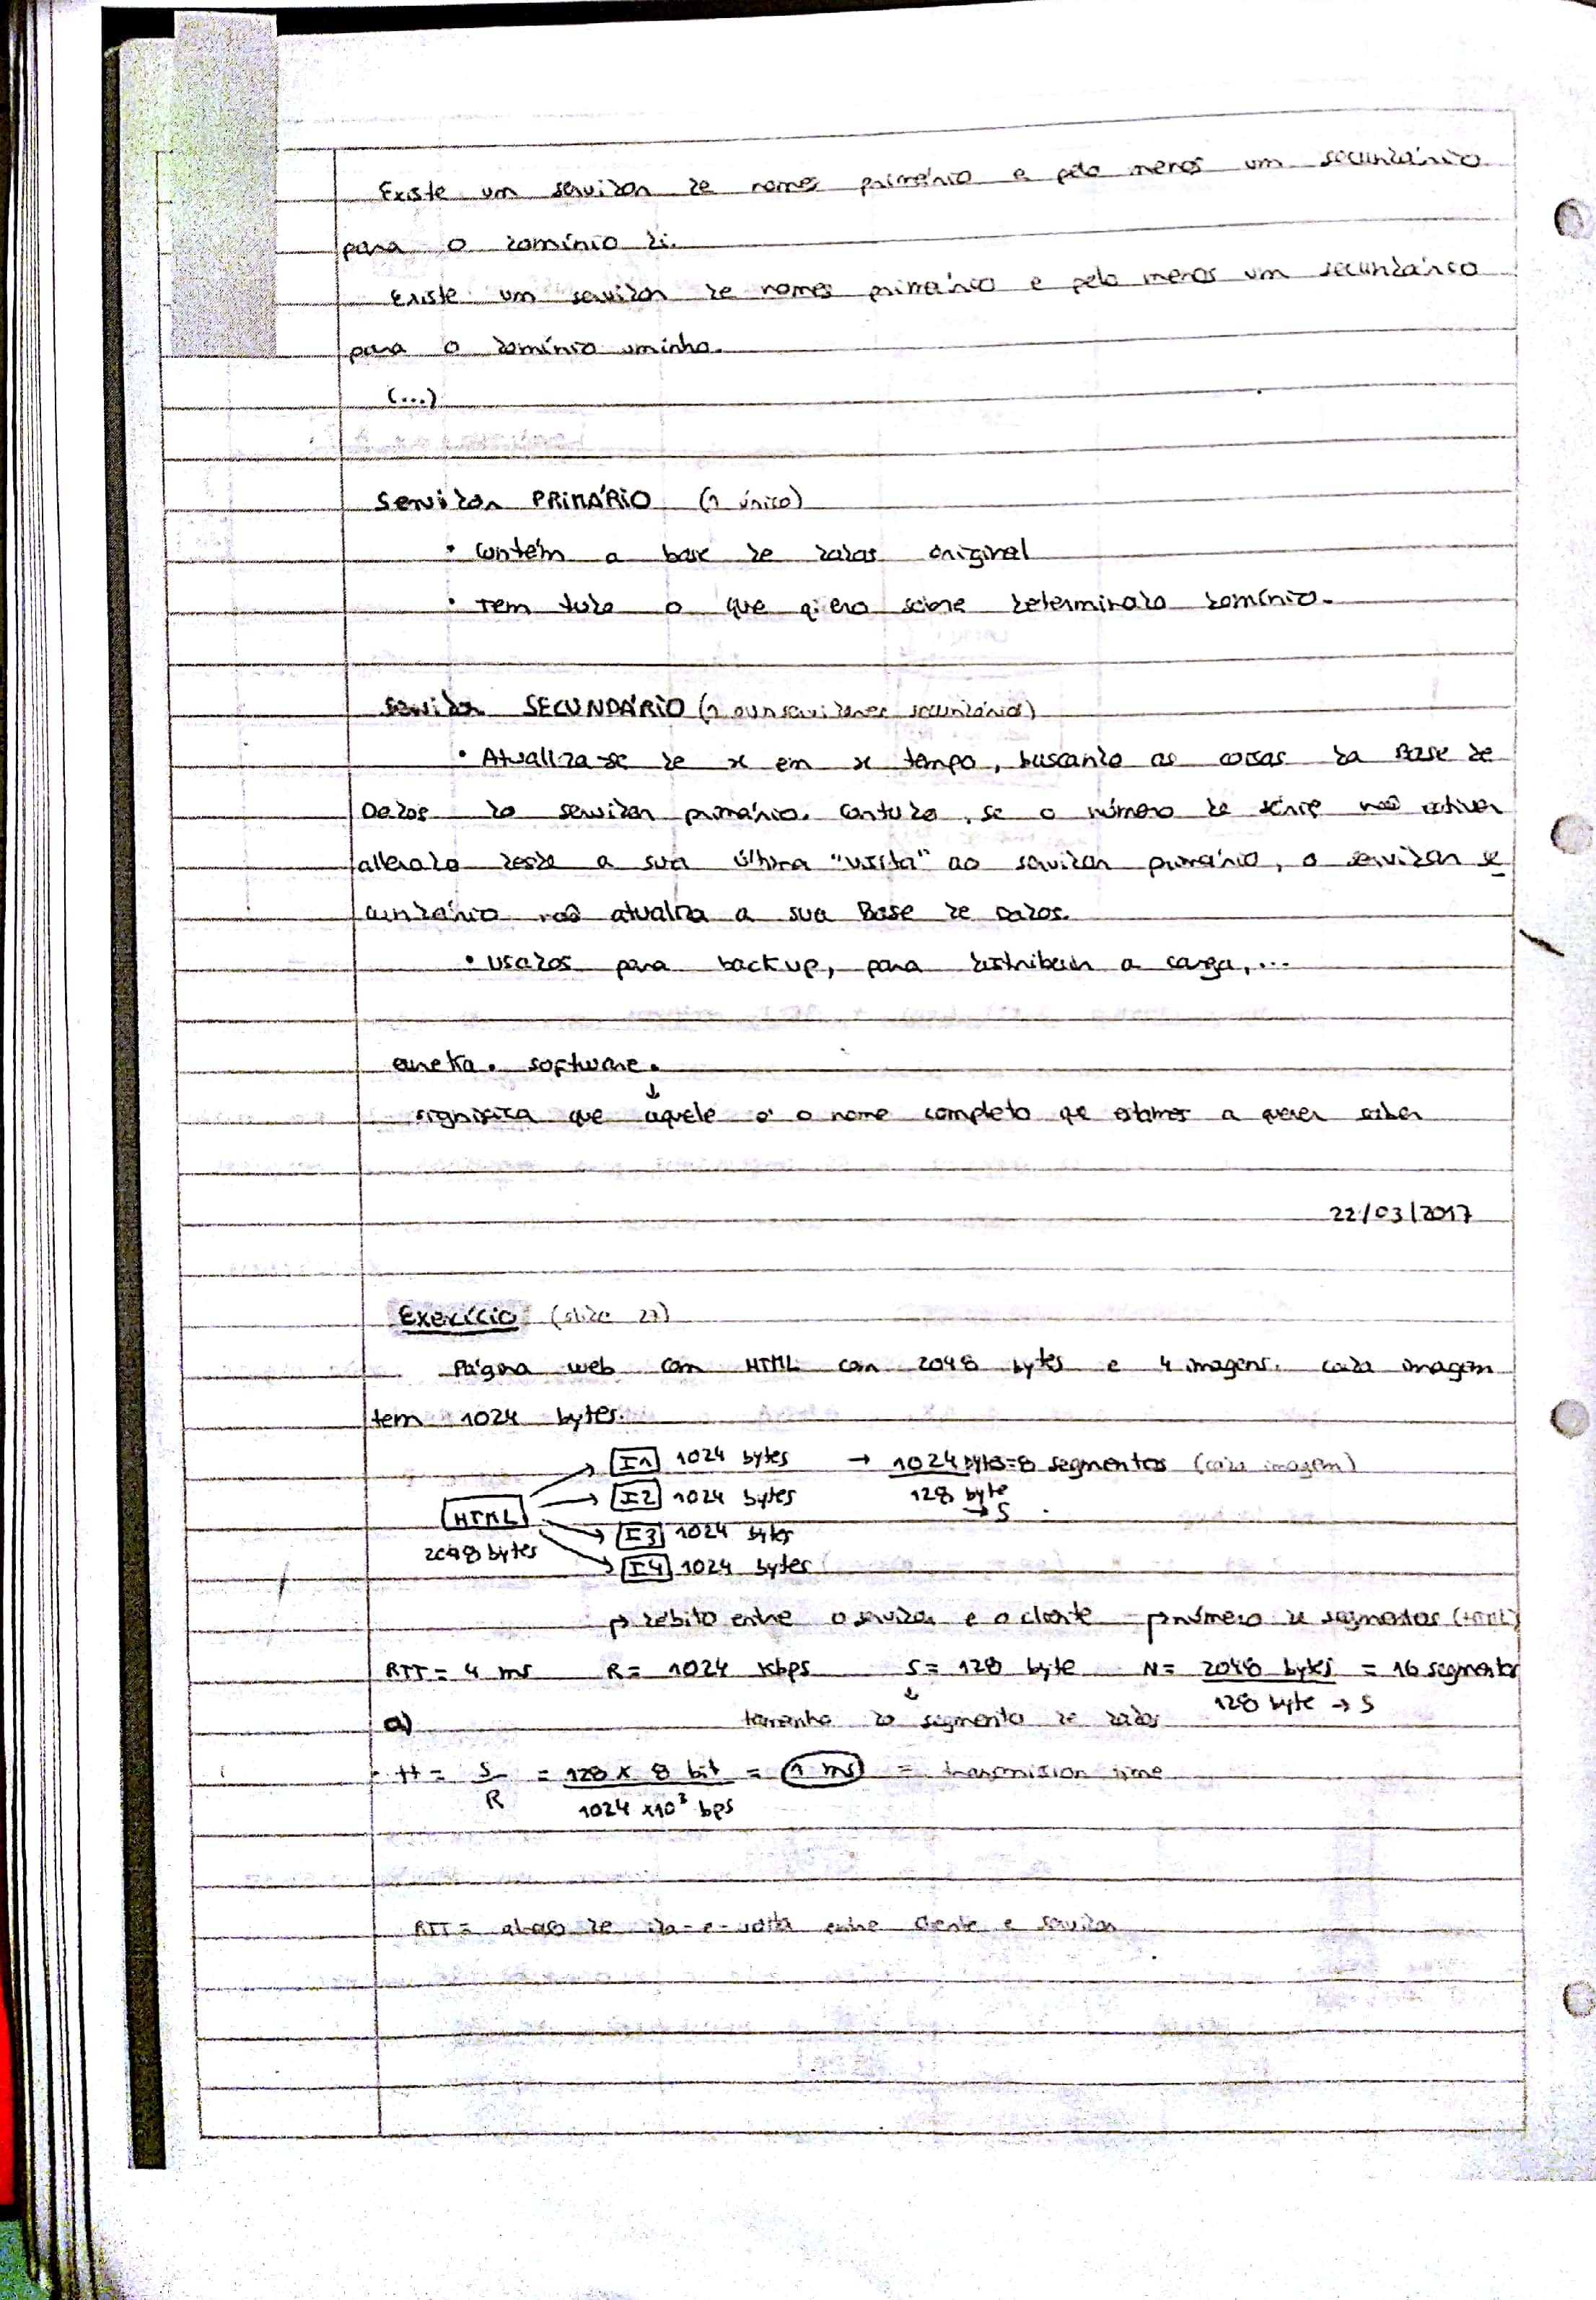 Existe um servidor de nomes primário e pelo menos um secundário
para o domínio di.
Existe um servidor de nomes primário e pelo menos um secundário
para o domínio uminho.
(...)
Servidor PRIMÁRIO (1 único)
• Contém a base de dados original
• Tem tudo o que quero sobre determinado domínio.
Servidor SECUNDÁRIO (1 ou n servidores secundários)
• Atualiza-se de x em x tempo, buscando as coisas da Base de
Dados do servidor primário. Contudo, se o número de série não estiver
alterado desde a sua última "visita" ao servidor primário, o servidor se
cundário não atualiza a sua Base de Dados.
• Usados para backup, para distribuir a carga,...
eureka. software.
↓
significa que aquele é o nome completo que estamos a querer saber
22/03/2017
Exercício (slide 27)
Página web com HTML com 2048 bytes e 4 imagens. cada imagem
tem 1024 bytes.
I1 1024 bytes → 1024 bytes = 8 segmentos (cada imagem)
I2 1024 bytes 128 byte
→ S
HTML I3 1024 bytes
2048 bytes I4 1024 bytes
→ débito entre o servidor e o cliente → número de segmentos (HTML)
RTT = 4 ms R = 1024 kbps S = 128 byte N = 2048 bytes = 16 segmentos
↓ 128 byte → S
a) tamanho do segmento de dados
• tt = S = 128 x 8 bit = 1 ms = transmission time
R 1024 x10³ bps
RTT = atraso de ida-e-volta entre cliente e servidor